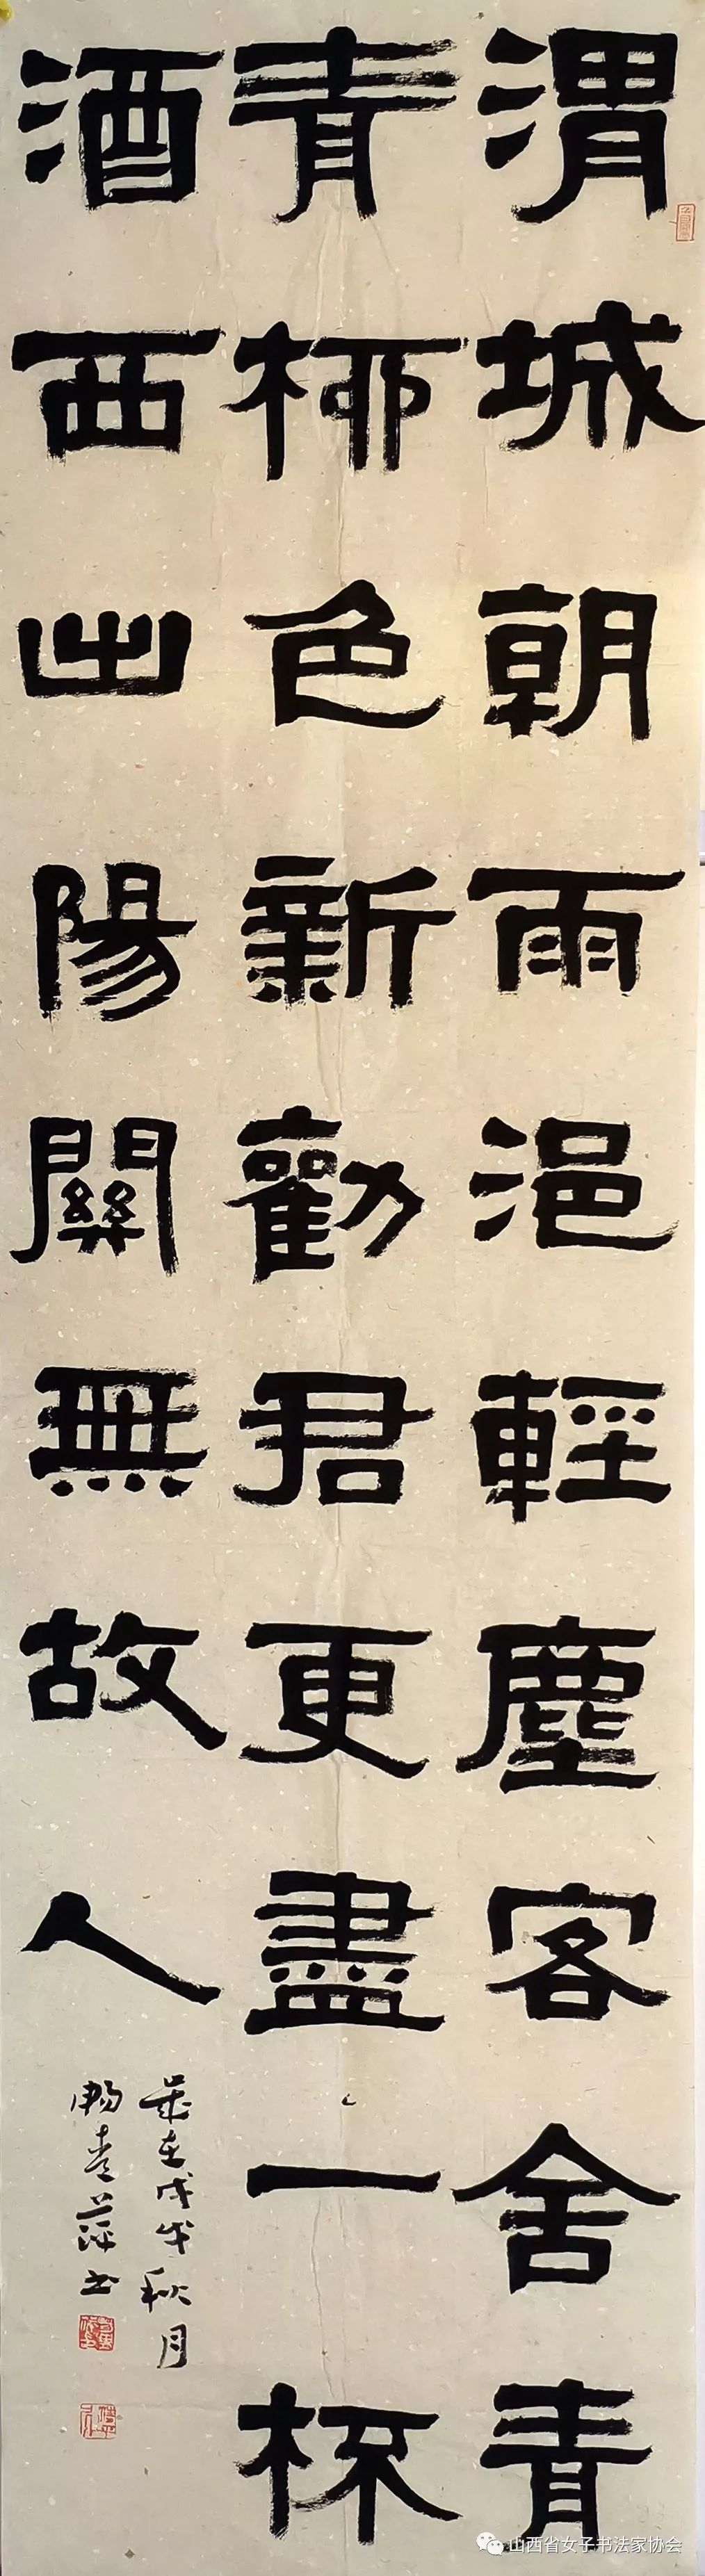 渭城朝雨浥輕塵客舍青
青柳色新勸君更盡一杯
酒西出陽關無故人
歲在戊戌秋月
暢春萍書
山西省女子书法家协会